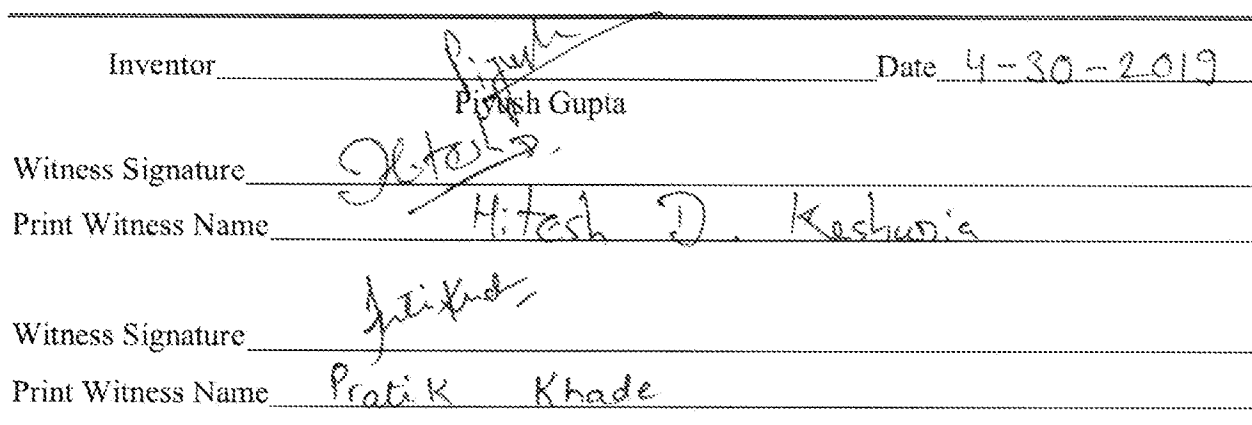 Inventor Piyush Date 4-30-2019
Piyush Gupta
Witness Signature Hitesh D.
Print Witness Name Hitesh D. Keshuria
Witness Signature
Print Witness Name Pratik Khade